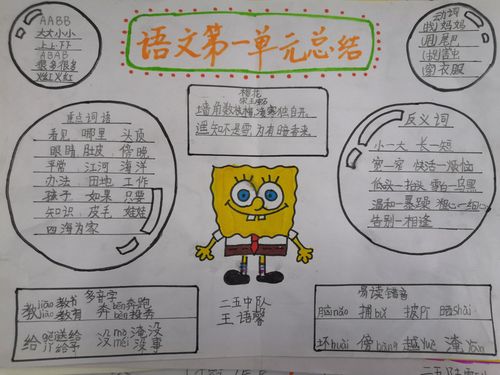 语文第一单元总结
AABB
大大小小
上上下下
ABAB
很多很多
火红火红
动词
(找)妈妈
(甩)尾巴
(捉)害虫
(穿)衣服
梅花
宋 王安石
墙角数枝梅,凌寒独自开。
遥知不是雪,为有暗香来。
重点词语
看见 哪里 头顶
眼睛 肚皮 傍晚
平常 江河 海洋
办法 田地 工作
孩子 如果 只要
知识 皮毛 娃娃
四海为家
反义词
小—大 长—短
宽—窄 快活—烦恼
低头—抬头 雪白—乌黑
温和—暴躁
告别—相逢
多音字
教 jiāo教书 jiào教育
奔 bēn奔跑 bèn投奔
给 gěi送给 jǐ给予
没 mò淹没 méi没事
二五中队
王语馨
易读错音
脑nǎo 捕bǔ 披pī 晒shài
坏huài 傍bàng 越yuè 淹yān